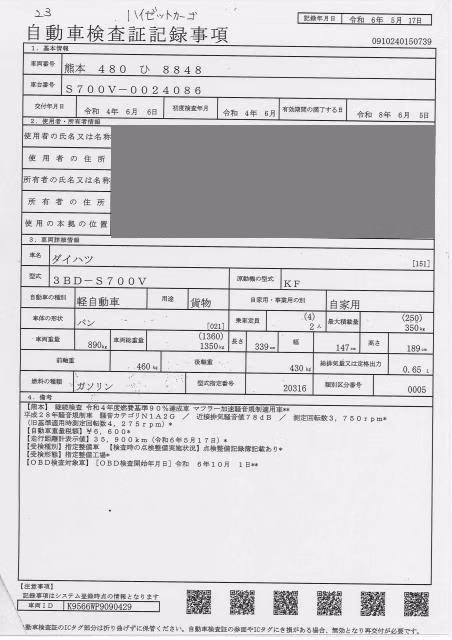 23 ハイゼットカーゴ
記録年月日 令和 6年 5月 17日
自動車検査証記録事項
0910240150739
1. 基本情報
車両番号 熊本 480 ひ 8848
車台番号 S700V-0024086
交付年月日 令和 4年 6月 6日 初度検査年月 令和 4年 6月 有効期間の満了する日 令和 8年 6月 5日
2. 使用者・所有者情報
使用者の氏名又は名称
使用者の住所
所有者の氏名又は名称
所有者の住所
使用の本拠の位置
3. 車両詳細情報
車名 ダイハツ [151]
型式 3BD-S700V 原動機の型式 KF
自動車の種別 軽自動車 用途 貨物 自家用・事業用の別 自家用
車体の形状 バン [021] 乗車定員 (4) 2人 最大積載量 (250) 350kg
車両重量 890kg 車両総重量 (1360) 1350kg 長さ 339cm 幅 147cm 高さ 189cm
前軸重 460kg 後軸重 430kg 総排気量又は定格出力 0.65 L
燃料の種類 ガソリン 型式指定番号 20316 類別区分番号 0005
4. 備考
【熊本】 継続検査 令和4年度燃費基準90%達成車 マフラー加速騒音規制適用車**
平成28年騒音規制車 騒音カテゴリN1A2G / 近接排気騒音値78dB / 測定回転数3,750rpm*
(旧基準適用時測定回転数4,275rpm)*
【自動車重量税額】¥6,600*
【走行距離計表示値】35,900km(令和6年5月17日)*
【受検種別】指定整備車 【検査時の点検整備実施状況】点検整備記録簿記載あり*
【受検形態】指定整備工場*
【OBD検査対象車】[OBD検査開始年月日]令和 6年10月 1日**
【注意事項】
記録事項はシステム登録時点の情報となります
車両ID K9566WP9090429
自動車検査証のICタグ部分は折り曲げずに保管ください。自動車検査証の券面やICタグにき損がある場合、無効となり再交付が必要です。